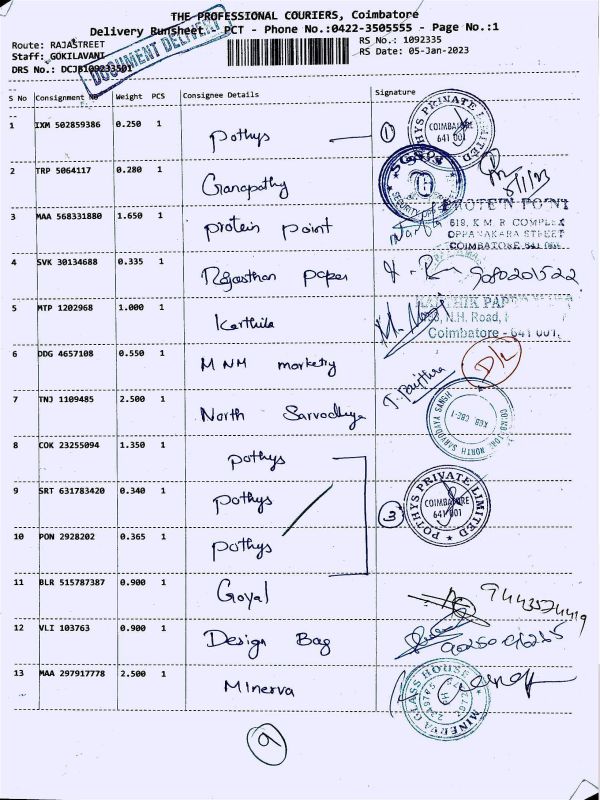 THE PROFESSIONAL COURIERS, Coimbatore
Delivery Runsheet. PCT - Phone No.:0422-3505555 - Page No.:1
Route: RAJASTREET
RS No.: 1092335
Staff: GOKILAVANI
RS Date: 05-Jan-2023
DRS No.: DCJB109233501
DOCUMENT DELIVERY
S No Consignment No Weight PCS Consignee Details Signature
1 IXM 502859386 0.250 1 Pothys 1
POTHYS PRIVATE LIMITED COIMBATORE 641 001
2 TRP 5064117 0.280 1 Ganapathy
3 MAA 568331880 1.650 1 protein point
PROTEIN POINT
619, K M R COMPLEX
OPPANAKARA STREET
COIMBATORE 641 001
4 SVK 30134688 0.335 1 Rajasthan paper
5 MTP 1202968 1.000 1 Karthik
N.H. Road,
Coimbatore - 641 001.
6 DDG 4657108 0.550 1 MNM
7 TNJ 1109485 2.500 1 North Sarvodhya
T. Pavithra
NORTH SARVODAYA SANGH
8 COK 23255094 1.350 1 pothys
9 SRT 631783420 0.340 1 pothys
3
POTHYS PRIVATE LIMITED COIMBATORE 641 001
10 PON 2928202 0.365 1 pothys
11 BLR 515787387 0.900 1 Goyal
9443574419
12 VLI 103763 0.900 1 Design Bag
13 MAA 297917778 2.500 1 Minerva
MINERVA GLASS HOUSE
9